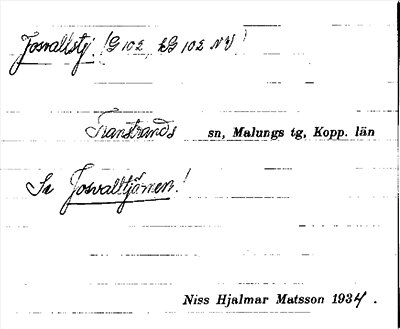 Josvalltj. (G 102, kG 102 NV)
Transtrands sn, Malungs tg, Kopp. län
Se Josvalltjärnen!
Niss Hjalmar Matsson 1934.